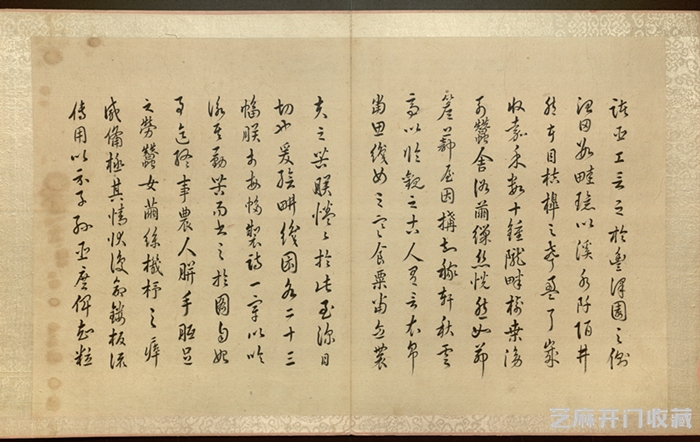 諸臣工言之於豐澤園之側
治田數畦環以溪水阡陌井
然在目桔槔之聲盈耳歲
收嘉禾數十鍾隴畔樹桑傍
列蠶舍浴繭繅絲恍然如茆
簷蔀屋因構知稼軒秋雲
亭以臨觀之古人有言衣帛
當思織女之寒食粟當念農
夫之苦朕惓惓於此至深且
切也爰繪耕織圖各二十三
幅朕於每幅製詩一章以吟
詠其勤苦而書之於圖自始
事迄終事農人胼手胝足
之勞蠶女繭絲機杼之瘁
咸備極其情狀復命鏤板流
傳用以示子孫臣庶俾知粒
芝麻开门收藏